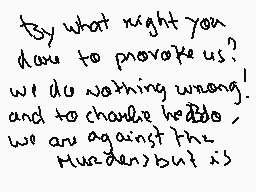 By what right you
dare to provoke us?
we do nothing wrong!
and to charlie hebdo,
we are against the
Murders but is